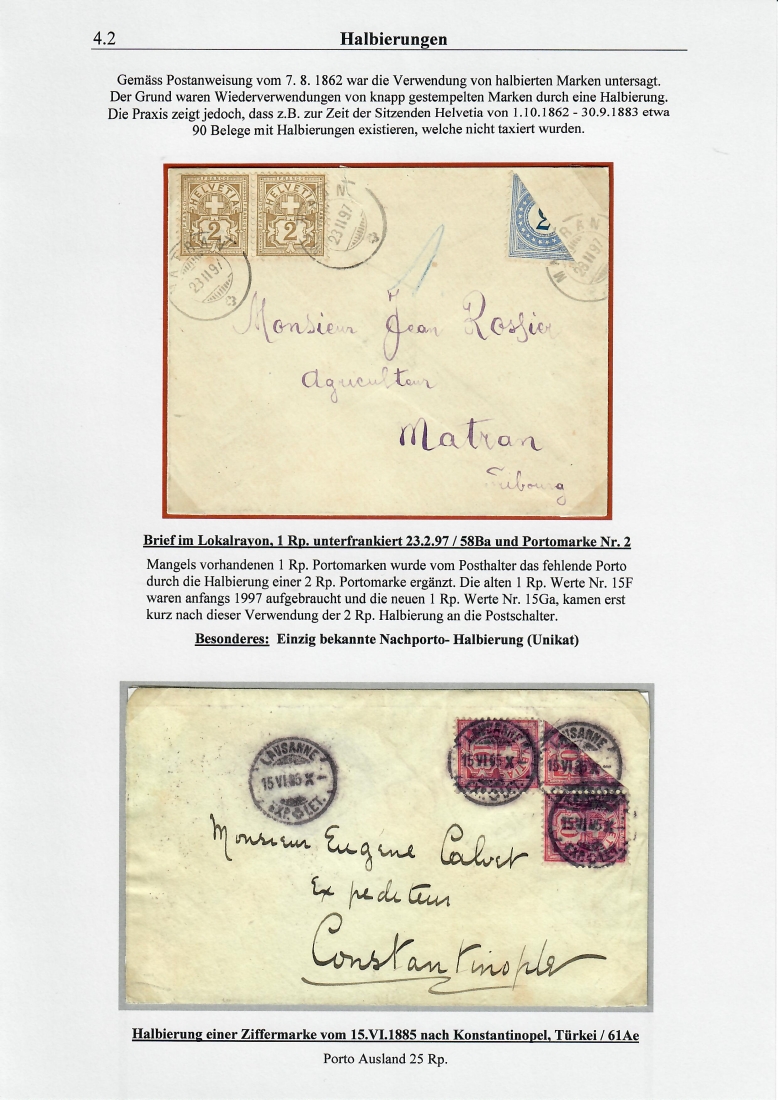 4.2 Halbierungen
Gemäss Postanweisung vom 7. 8. 1862 war die Verwendung von halbierten Marken untersagt.
Der Grund waren Wiederverwendungen von knapp gestempelten Marken durch eine Halbierung.
Die Praxis zeigt jedoch, dass z.B. zur Zeit der Sitzenden Helvetia von 1.10.1862 - 30.9.1883 etwa
90 Belege mit Halbierungen existieren, welche nicht taxiert wurden.
HELVETIA HELVETIA
2 2
23 II 97
23 II 97
2
MATRAN
23 II 97
Monsieur Jean Rossier
Agriculteur
Matran
Fribourg
Brief im Lokalrayon, 1 Rp. unterfrankiert 23.2.97 / 58Ba und Portomarke Nr. 2
Mangels vorhandenen 1 Rp. Portomarken wurde vom Posthalter das fehlende Porto
durch die Halbierung einer 2 Rp. Portomarke ergänzt. Die alten 1 Rp. Werte Nr. 15F
waren anfangs 1997 aufgebraucht und die neuen 1 Rp. Werte Nr. 15Ga, kamen erst
kurz nach dieser Verwendung der 2 Rp. Halbierung an die Postschalter.
Besonderes: Einzig bekannte Nachporto- Halbierung (Unikat)
LAUSANNE
15 VI 85 X
EXP. LET.
LAUSANNE
15 VI 85 X
15 VI 85 X
15 VI 85 X
Monsieur Eugène Calvet
Expediteur
Constantinople
Halbierung einer Ziffermarke vom 15.VI.1885 nach Konstantinopel, Türkei / 61Ae
Porto Ausland 25 Rp.